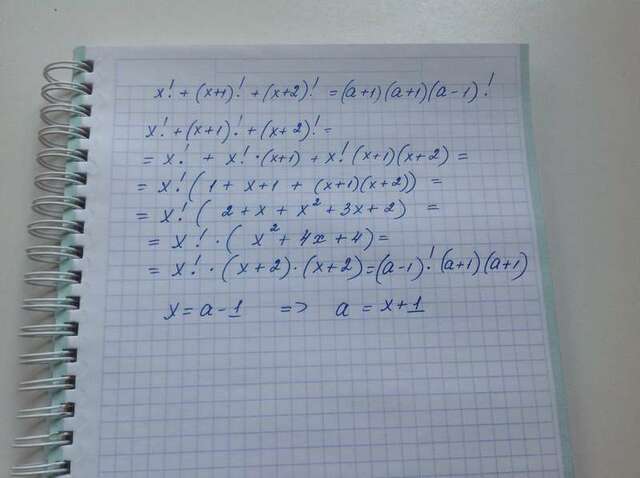 x! + (x+1)! + (x+2)! = (a+1)(a+1)(a-1)!
x! + (x+1)! + (x+2)! =
= x! + x! · (x+1) + x! (x+1)(x+2) =
= x! (1 + x+1 + (x+1)(x+2)) =
= x! ( 2 + x + x² + 3x + 2) =
= x! · ( x² + 4x + 4) =
= x! · (x+2) · (x+2) = (a-1)! (a+1)(a+1)
x = a - 1 => a = x + 1